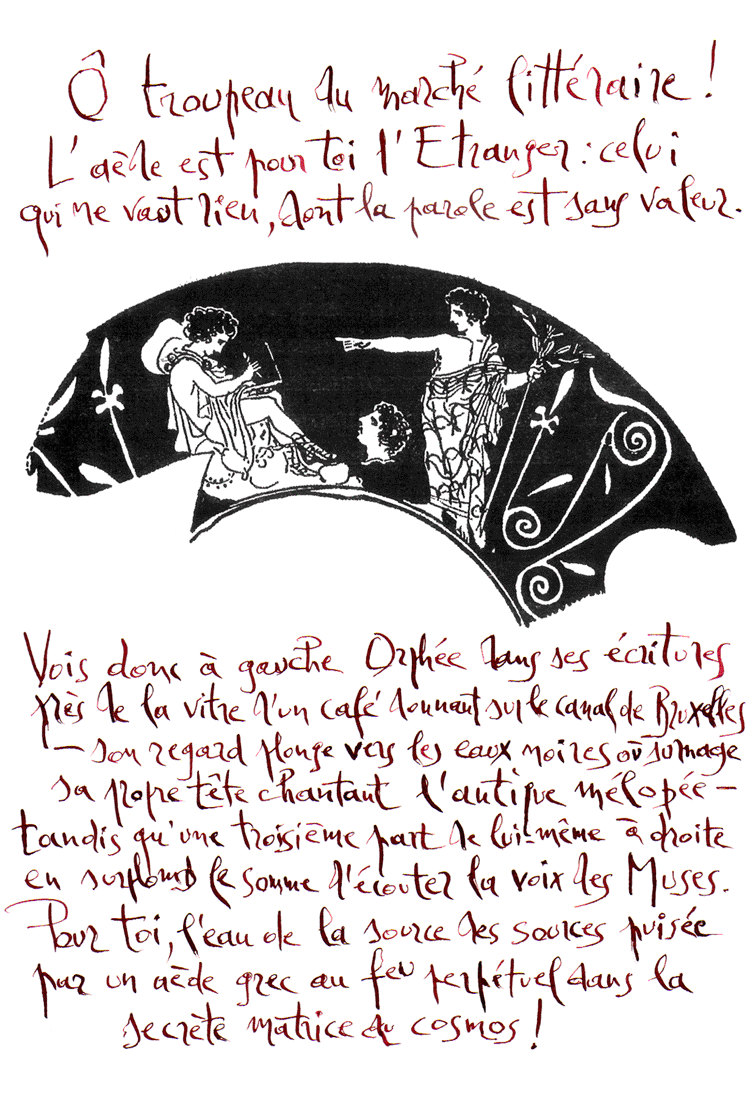 Ô troupeau du marché littéraire !
L'aède est pour toi l'Etranger : celui
qui ne vaut rien, dont la parole est sans valeur.
Vois donc à gauche Orphée dans ses écritures
près de la vitre d'un café donnant sur le canal de Bruxelles
– son regard plonge vers les eaux noires où surnage
sa propre tête chantant l'antique mélopée –
tandis qu'une troisième part de lui-même à droite
en surplomb le somme d'écouter la voix des Muses.
Pour toi, l'eau de la source des sources puisée
par un aède grec au feu perpétuel dans la
secrète matrice du cosmos !